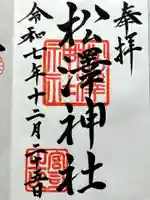 奉拝
松澤神社
令和七年十二月二十五日